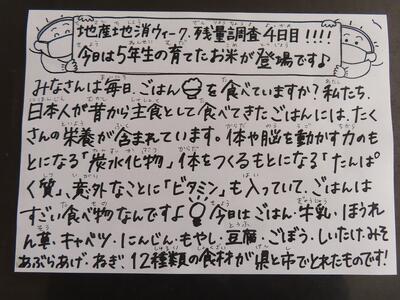 地産地消ウィーク、残量調査4日目!!!!
今日は5年生の育てたお米が登場です♪
みなさんは毎日、ごはんを食べていますか?私たち、
日本人が昔から主食として食べてきたごはんには、たく
さんの栄養が含まれています。体や脳を動かす力のも
とになる「炭水化物」、体をつくるもとになる「たんぱ
く質」、意外なことに「ビタミン」も入っていて、ごはんは
すごい食べ物なんですよ 今日はごはん・牛乳・ほうれ
ん草・キャベツ・にんじん・もやし・豆腐・ごぼう・しいたけ・みそ
あぶらあげ・ねぎ、12種類の食材が県と市でとれたものです!